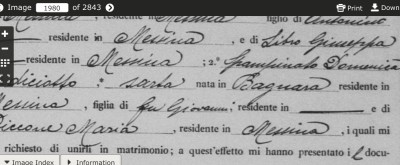 Image 1980 of 2843
Print Down
residente in Messina figlio di Antonino
residente in Messina, e di Libro Giuseppa
residente in Messina; 2.° Spampinato Domenica
diciotto, sarta nata in Bagnara residente in
Messina, figlia di fu Giovanni, residente in e di
Ciccone Maria, residente in Messina, i quali mi
richiesto di unirli in matrimonio; a quest'effetto mi hanno presentato i docu-
Image Index Information